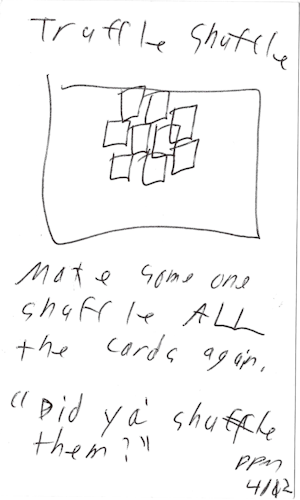 Truffle Shuffle
Make some one
shuffle ALL
the cards again.
"Did ya shuffle
them?"
PPM
4/12